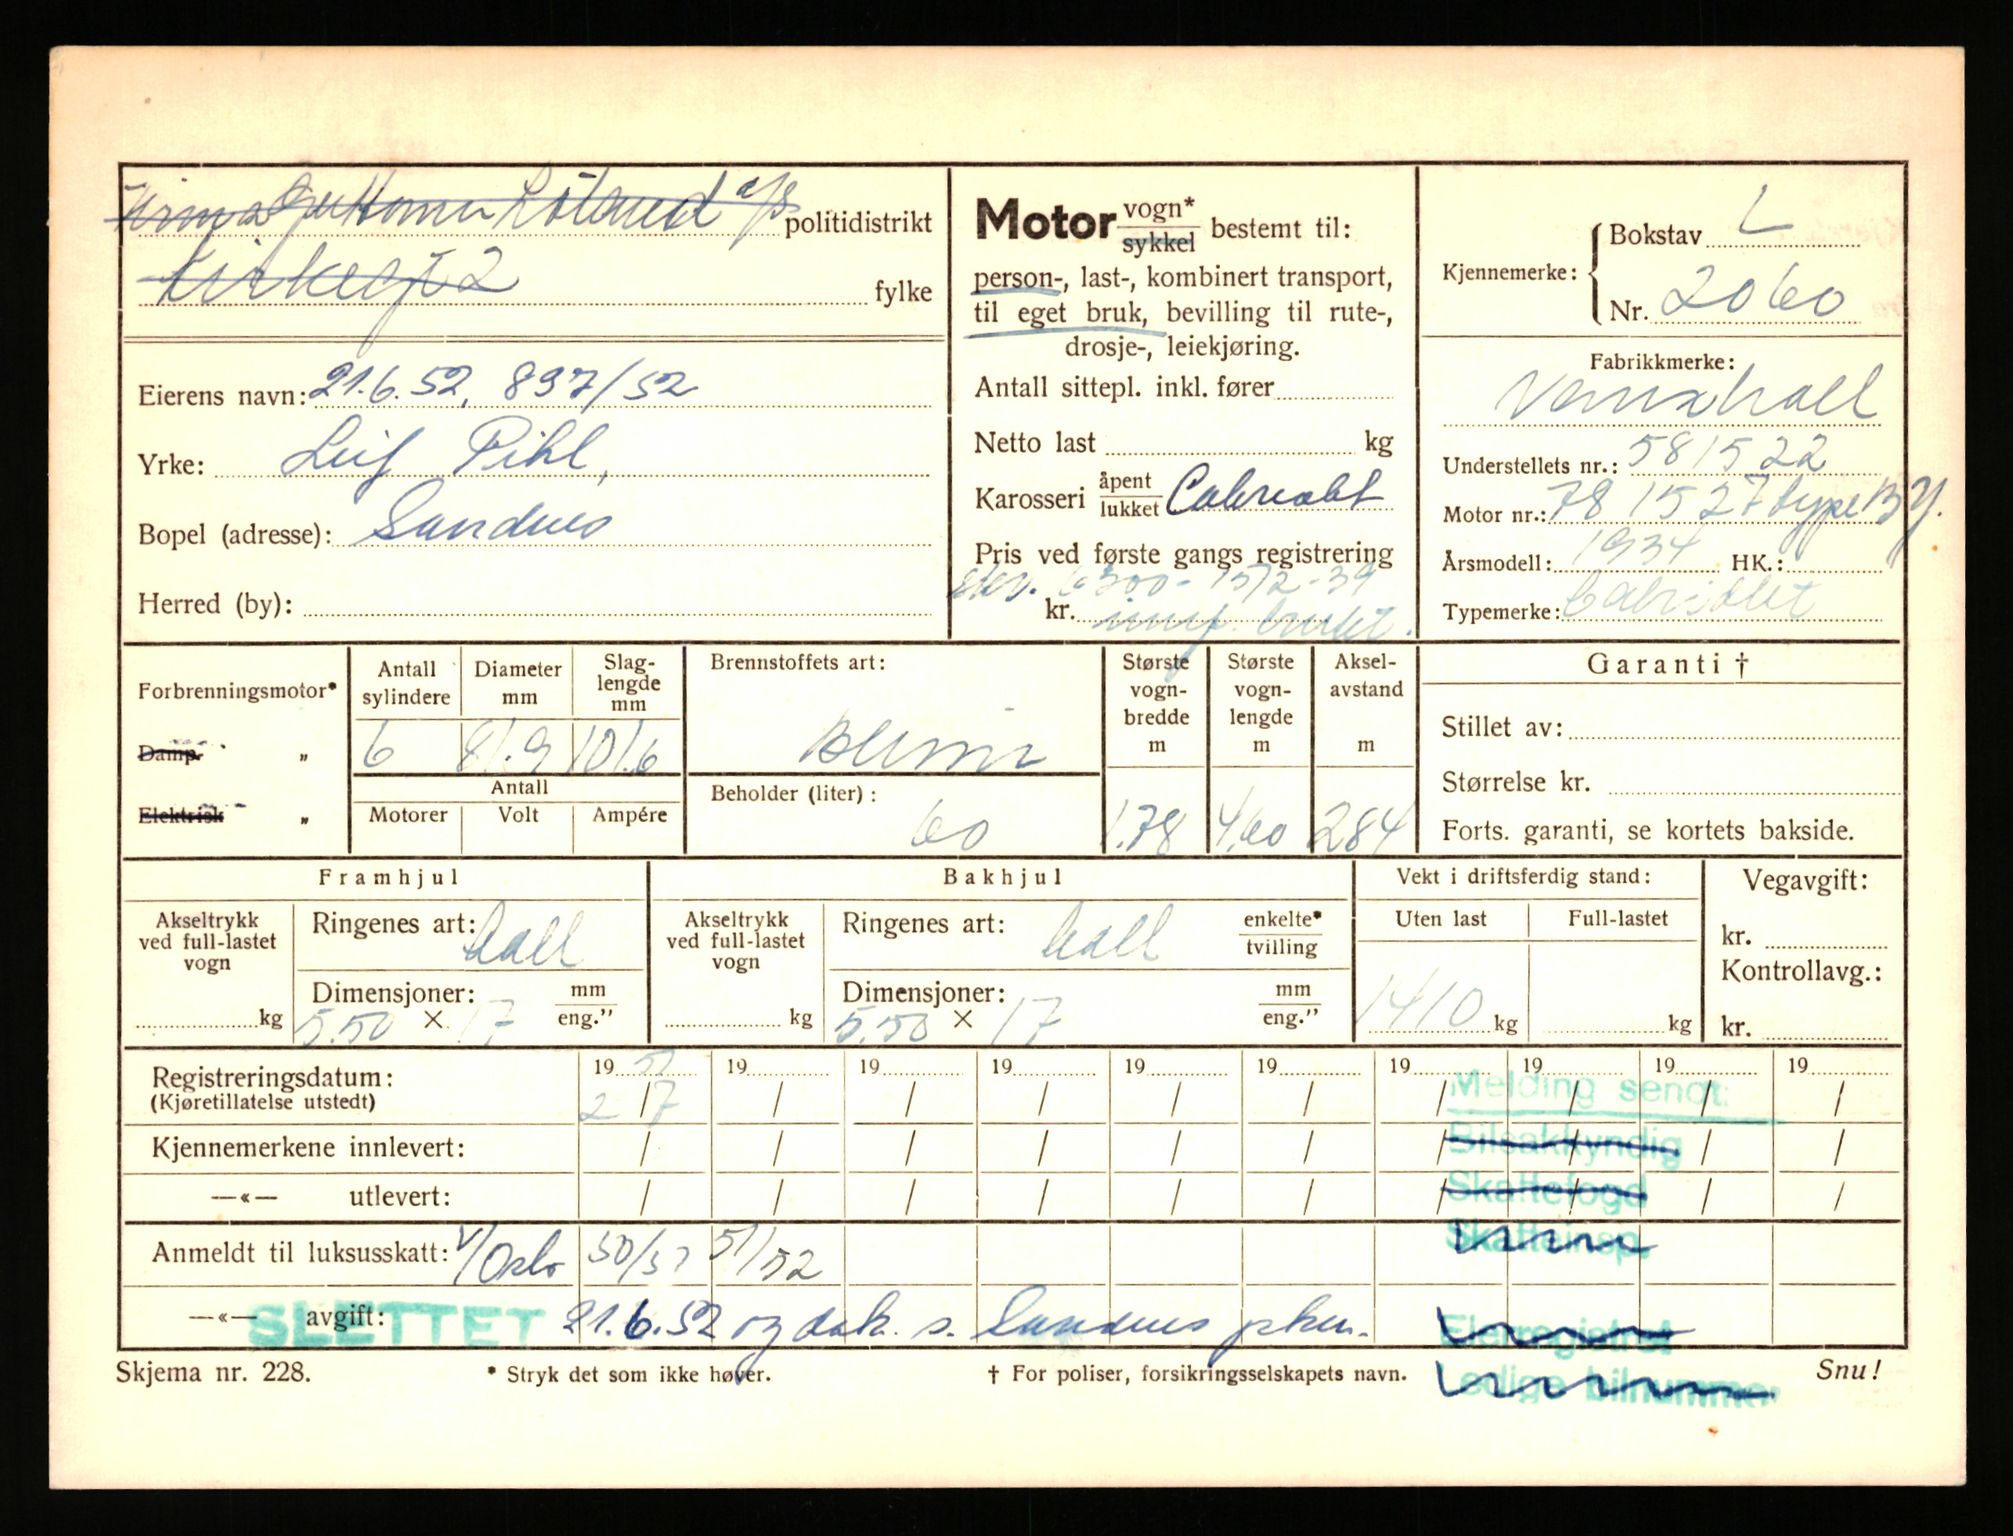 Firma Løland a/s politidistrikt
Kirkegt 2 fylke
Eierens navn: 21.6.52. 897/52
Yrke: Leif Pihl,
Bopel (adresse): Sandnes
Herred (by):
Motor vogn* sykkel bestemt til:
person-, last-, kombinert transport,
til eget bruk, bevilling til rute-,
drosje-, leiekjøring.
Antall sittepl. inkl. fører
Netto last kg
Karosseri åpent lukket Cabriolet
Pris ved første gangs registrering
6300 - 15/2-39
kr. brukt.
Kjennemerke: Bokstav L
Nr. 2060
Fabrikkmerke:
Vauxhall
Understellets nr.: 581522
Motor nr.: 781527 type BY.
Årsmodell: 1934 HK.:
Typemerke: Cabriolet
Forbrenningsmotor*
Damp. „
Elektrisk „
Antall sylindere Diameter mm Slag-lengde mm
6 81.9 101.6
Antall
Motorer Volt Ampére
Brennstoffets art:
Bensin
Beholder (liter):
60
Største vogn-bredde m
1.78
Største vogn-lengde m
4.60
Aksel-avstand m
284
Garanti †
Stillet av:
Størrelse kr.
Forts. garanti, se kortets bakside.
Framhjul
Akseltrykk ved full-lastet vogn
kg
Ringenes art: ball
Dimensjoner: mm
5.50 × 17 eng.”
Bakhjul
Akseltrykk ved full-lastet vogn
kg
Ringenes art: ball enkelte* tvilling
Dimensjoner: mm
5.50 × 17 eng.”
Vekt i driftsferdig stand:
Uten last Full-lastet
1410 kg kg
Vegavgift:
kr.
Kontrollavg.:
kr.
Registreringsdatum: 19 51 19 19 19 19 19 19 19 19 19
(Kjøretillatelse utstedt) 2/7 / / / / / / / / /
Kjennemerkene innlevert: / / / / / / / / / /
—«— utlevert: / / / / / / / / / /
Anmeldt til luksusskatt: V/Oslo 50/51 51/52
—«— avgift: SLETTET 21.6.52 og dok. s. Sandnes pkm.
Melding sendt:
Bilsakkyndig
Skattefogd
Skatteinsp.
Eierregistret
Ledige bilnummer
Skjema nr. 228. * Stryk det som ikke høver. † For poliser, forsikringsselskapets navn. Snu!